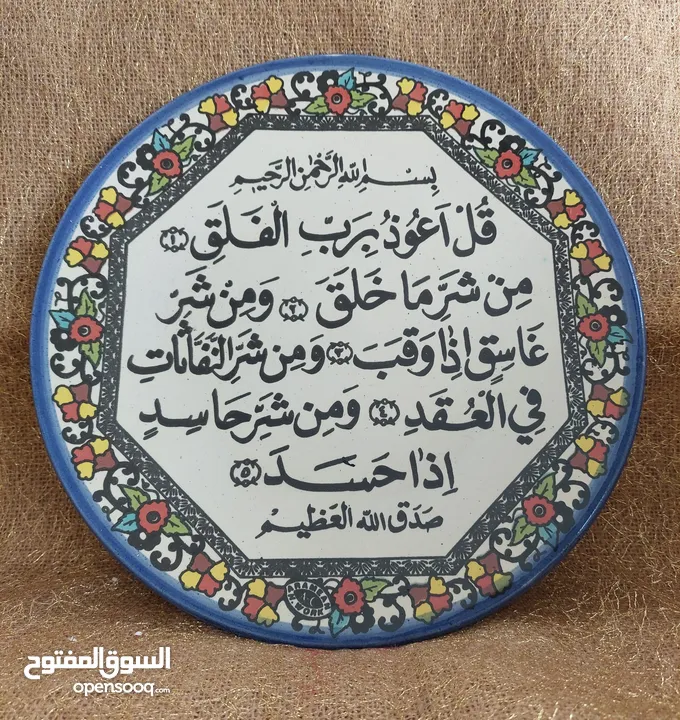 بِسْمِ اللهِ الرَّحْمٰنِ الرَّحِيْمِ
قُلْ اَعُوْذُ بِرَبِّ الْفَلَقِ ١
مِنْ شَرِّ مَا خَلَقَ ٢ وَمِنْ شَرِّ
غَاسِقٍ اِذَا وَقَبَ ٣ وَمِنْ شَرِّ النَّفّٰاثَاتِ
فِي الْعُقَدِ ٤ وَمِنْ شَرِّ حَاسِدٍ
اِذَا حَسَدَ ٥
صَدَقَ اللهُ الْعَظِيْمُ
السوق المفتوح
opensooq.com